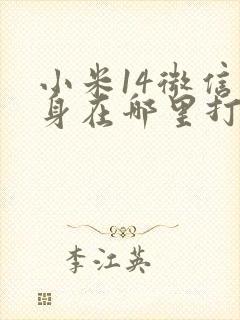 小米14微信
身在哪里打
李江英